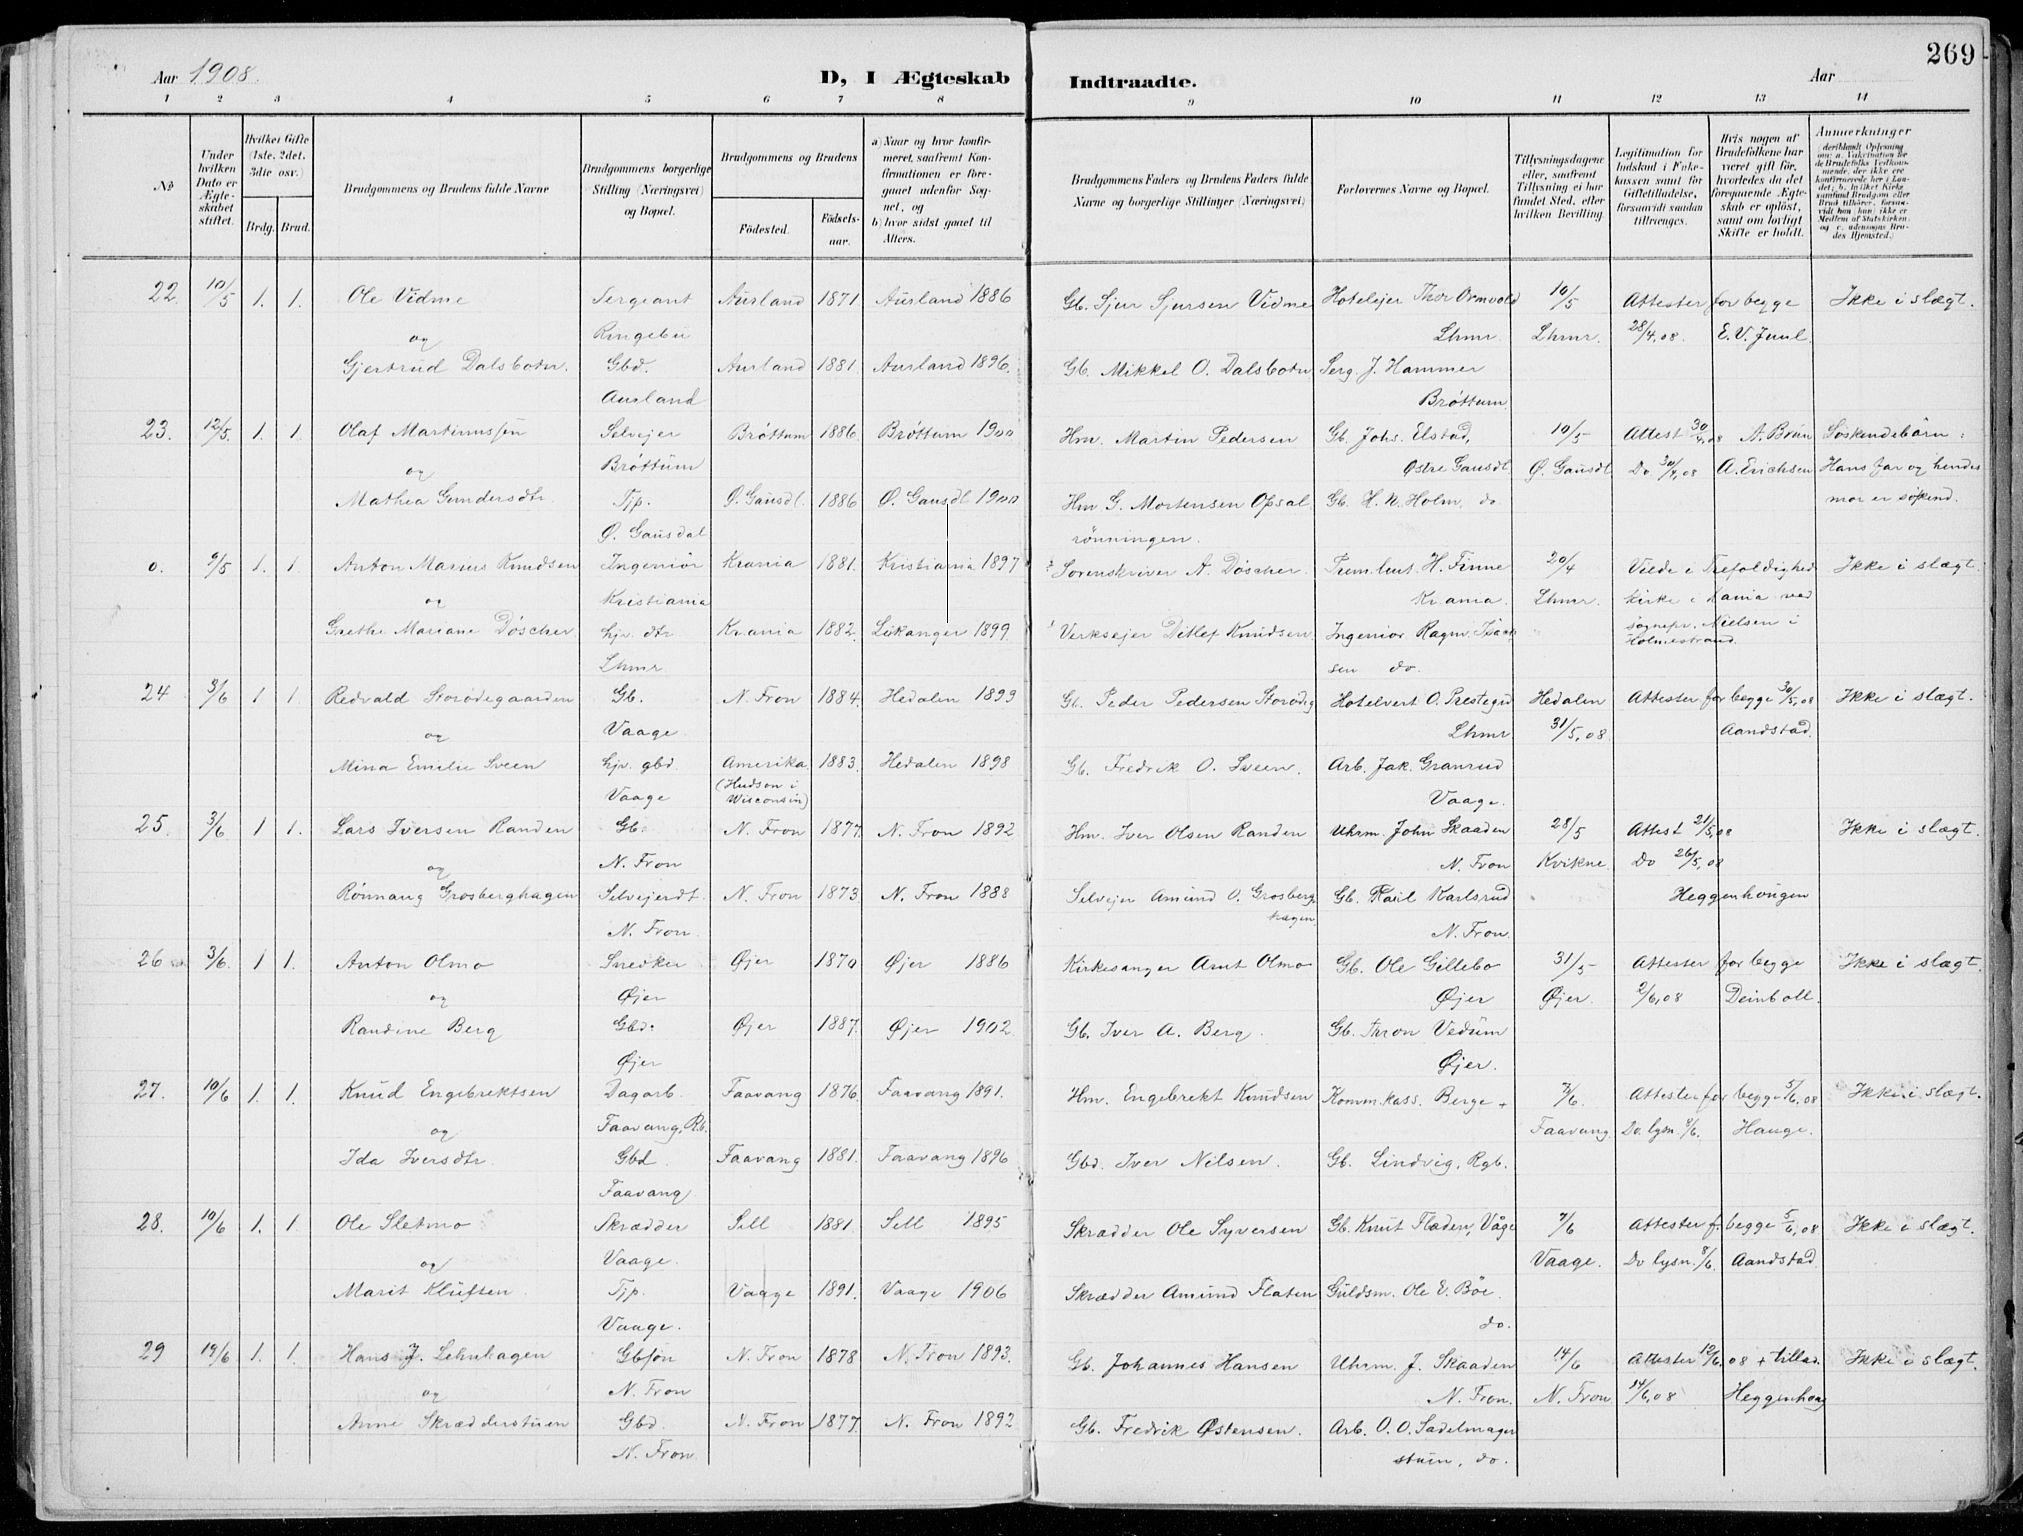 269
Aar 1908.
D, I Ægteskab Indtraadte.
Aar
1 2 3 4 5 6 7 8 9 10 11 12 13 14
No
Under hvilken Dato er Ægteskabet stiftet.
Hvilket Gifte (1ste, 2det, 3die osv.)
Brdg. Brud.
Brudgommens og Brudens fulde Navne
Brudgommens borgerlige Stilling (Næringsvei) og Bopæl.
Brudgommens og Brudens
Fødested. Fødselsaar.
a) Naar og hvor konfirmeret, saafremt Konfirmationen er foregaaet udenfor Sognet, og
b) hvor sidst gaaet til Alters.
Brudgommens Faders og Brudens Faders fulde Navne og borgerlige Stillinger (Næringsvei)
Forlovernes Navne og Bopæl.
Tillysningsdagene eller, saafremt Tillysning ei har fundet Sted, efter hvilken Bevilling.
Legitimation for Indskud i Enkekassen samt for Giftetilladelse, forsaavidt saadan tiltrænges.
Hvis nogen af Brudefolkene har været gift, hvorledes da det foregaaende Ægteskab er opløst, samt om lovligt Skifte er holdt.
Anmærkninger
22. 10/5 1. 1. Ole Vidme Sergeant Aurland 1871 Aurland 1886 Gb. Sjur Sjursen Vidme Hotelejer Thor Ormvold 10/5 Attester for begge Ikke i slægt.
og Ringebu Lhmr. Lhmr. 28/4.08. E. V. Juul.
Gjertrud Dalsbotn. Gbd. Aurland 1881. Aurland 1896. Gb. Mikkel O. Dalsbotn Serg. J. Hammer
Aurland Brøttum
23. 12/5. 1. 1. Olaf Martinussen Selvejer Brøttum 1886. Brøttum 1900 Hm. Martin Pedersen Gb. Johs. Elstad, 10/5 Attest 30/4,08 A. Brun Søskendebørn:
og Brøttum Østre Gausdl. Ø. Gausdl Do 30/4,08 A. Erichsen Hans far og hendes
Mathea Gundersdtr. Tjp. Ø. Gausdl. 1886 Ø. Gausdl 1900 Hm G. Mortensen Opsal Gb. H. N. Holm, do. mor er søskend.
Ø. Gausdal rønningen.
0. 9/5 1. 1. Anton Marius Knudsen Ingeniør Krania 1881. Kristiania 1897 Sorenskriver A. Døscher. Prem.lieut. H. Finne 20/4 Viede i Trefoldighed Ikke i slægt.
og Kristiania Krania. Lhmr. kirke i Kania ved
Grethe Mariane Døscher hjv. dtr Krania 1882. Leikanger 1899. Verksejer Ditlef Knudsen Ingeniør Ragnv. Isach sognepr. Nielsen i
Lhmr sen do. Holmestrand.
24 3/6 1 1. Redvald Storødegaarden Gb. N. Fron 1884. Hedalen 1899 Gb. Peder Pedersen Storødeg Hotelvert O. Prestegrd Hedalen Attester for begge 30/5,08 Ikke i slægt.
og Vaage. Lhmr 31/5,08. Aandstad.
Mina Emilie Sveen hjv. gbd. Amerika 1883. Hedalen 1898 Gb. Fredrik O. Sveen. Arb. Jak. Granrud
Vaage (Hudson i Wisconsin) Vaage.
25. 3/6 1 1. Lars Iversen Randen Gb. N. Fron 1877. N. Fron 1892 Hm. Iver Olsen Randen Uhrm. John Skaaden 28/5 Attest 21/5,08 Ikke i slægt.
og N. Fron. N. Fron Kvikne Do 26/5,08
Rønnaug Grosberghagen Selvejerdt. N. Fron 1873. N. Fron 1888 Selvejer Amund O. Grosberghagen Gb. Paul Karlsrud Heggenhougen
N. Fron. N. Fron.
26 3/6. 1 1. Anton Olmo Snedker Øjer 1870 Øjer 1886 Kirkesanger Amt Olmo Gb. Ole Gillebo 31/5 Attester for begge Ikke i slægt.
og Øjer Øjer Øjer. 2/6,08 Deinboll.
Randine Berg Gbd. Øjer 1887. Øjer 1902. Gb. Iver A. Berg. Gb. Thron Vedum
Øjer Øjer.
27. 10/6 1. 1. Knud Engebrektsen Dagarb. Faavang 1876. Faavang 1891. Hm. Engebrekt Knudsen Komm.kass. Berge + 7/6. Attester for begge 5/6,08 Ikke i slægt.
og Faavang, Rb. Faavang. Do. lysn. 8/6. Hauge.
Ida Iversdtr. Gbd. Faavang 1881. Faavang 1896 Gbd. Iver Nilsen. Gb. Lindvig, Rgb.
Faavang
28. 10/6 1. 1. Ole Sletmo Skrædder Sell 1881. Sell 1895 Skrædder Ole Syversen Gb. Knut Fladen, Våge 7/6 Attester f. begge 5/6,08 Ikke i slægt.
og Vaage. Vaage. Do lysn. 8/6. Aandstad.
Marit Kluften. Tjp. Vaage 1891. Vaage 1906 Skrædder Amund Flaten Guldsm. Ole E. Bøe.
Vaage. do.
29 19/6 1. 1. Hans J. Lehnhagen Gbsøn N. Fron 1878 N. Fron 1893. Gb. Johannes Hansen Uhrm. J. Skaaden 14/6 Attester 12/6.08 + tillad. Ikke i slægt.
og N. Fron N. Fron. N. Fron 14/6,08 Heggenhoug
Anne Skrædderstuen Gbd. N. Fron 1877. N. Fron 1892 Gb. Fredrik Østensen. Arb. O. O. Sadelmager
N. Fron stuen, do.